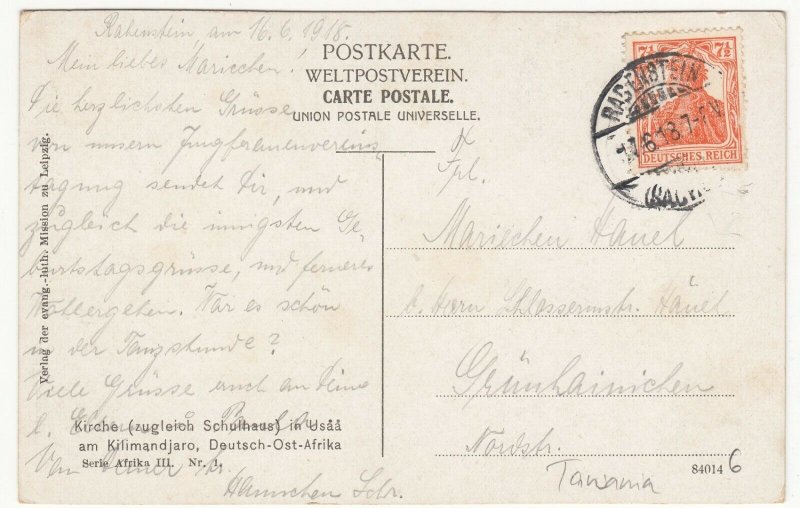 Rabenstein, am 16.6.1918.
Mein liebes Mariechen!
Die herzlichsten Grüsse
von unserm Jungfrauenvereins
tagung sendet Dir, und
zugleich die innigsten Ge-
burtstagsgrüsse, und ferneres
Wohlergehen. War es schön
in der Tanzstunde?
Viele Grüsse auch an Deine
l. Eltern
Von Deiner
Hannchen Schr.
POSTKARTE.
WELTPOSTVEREIN.
CARTE POSTALE.
UNION POSTALE UNIVERSELLE.
Verlag der evang.-luth. Mission zu Leipzig.
Kirche (zugleich Schulhaus) in Usåå
am Kilimandjaro, Deutsch-Ost-Afrika
Serie Afrika III. Nr. 1.
7½ 7½
DEUTSCHES REICH
RABENSTEIN
Frl.
Mariechen Hänel
b. Herrn Schlossermstr. Hänel
Grünhainichen
Nordstr.
Tanzania
84014 6